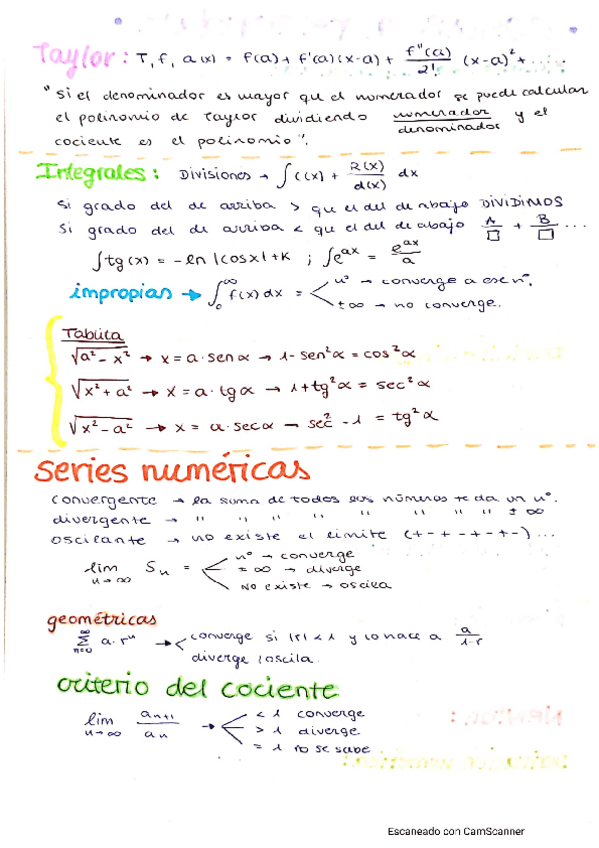 Taylor: T, f, a(x) = f(a) + f'(a)(x-a) + f''(a)/2! (x-a)² + .....
"si el denominador es mayor que el numerador se puede calcular
el polinomio de Taylor dividiendo numerador/denominador y el
cociente es el polinomio".
Integrales: Divisiones → ∫ C(x) + R(x)/d(x) dx
Si grado del de arriba > que el del de abajo DIVIDIMOS
Si grado del de arriba < que el del de abajo A/□ + B/□ ...
∫tg(x) = -ln|cosx|+K ; ∫e^ax = e^ax/a
impropias → ∫₀^∞ f(x)dx = < nº → converge a ese nº.
±∞ → no converge.
Tablita
√a²-x² → x = a·senα → 1-sen²α = cos²α
√x²+a² → x = a·tgα → 1+tg²α = sec²α
√x²-a² → x = a·secα → sec²-1 = tg²α
series numéricas
convergente → la suma de todos sus números te da un nº.
divergente → " " " " " " " " ± ∞
oscilante → no existe el limite (+-+-+-+-)...
lim n→∞ Sn = < nº → converge
±∞ → diverge
No existe → oscila
geométricas
∑ n=0 ^∞ a·rⁿ → < converge si |r| < 1 y lo hace a a/1-r
diverge/oscila.
criterio del cociente
lim n→∞ an+1/an → < < 1 converge
> 1 diverge
= 1 no se sabe
Escaneado con CamScanner